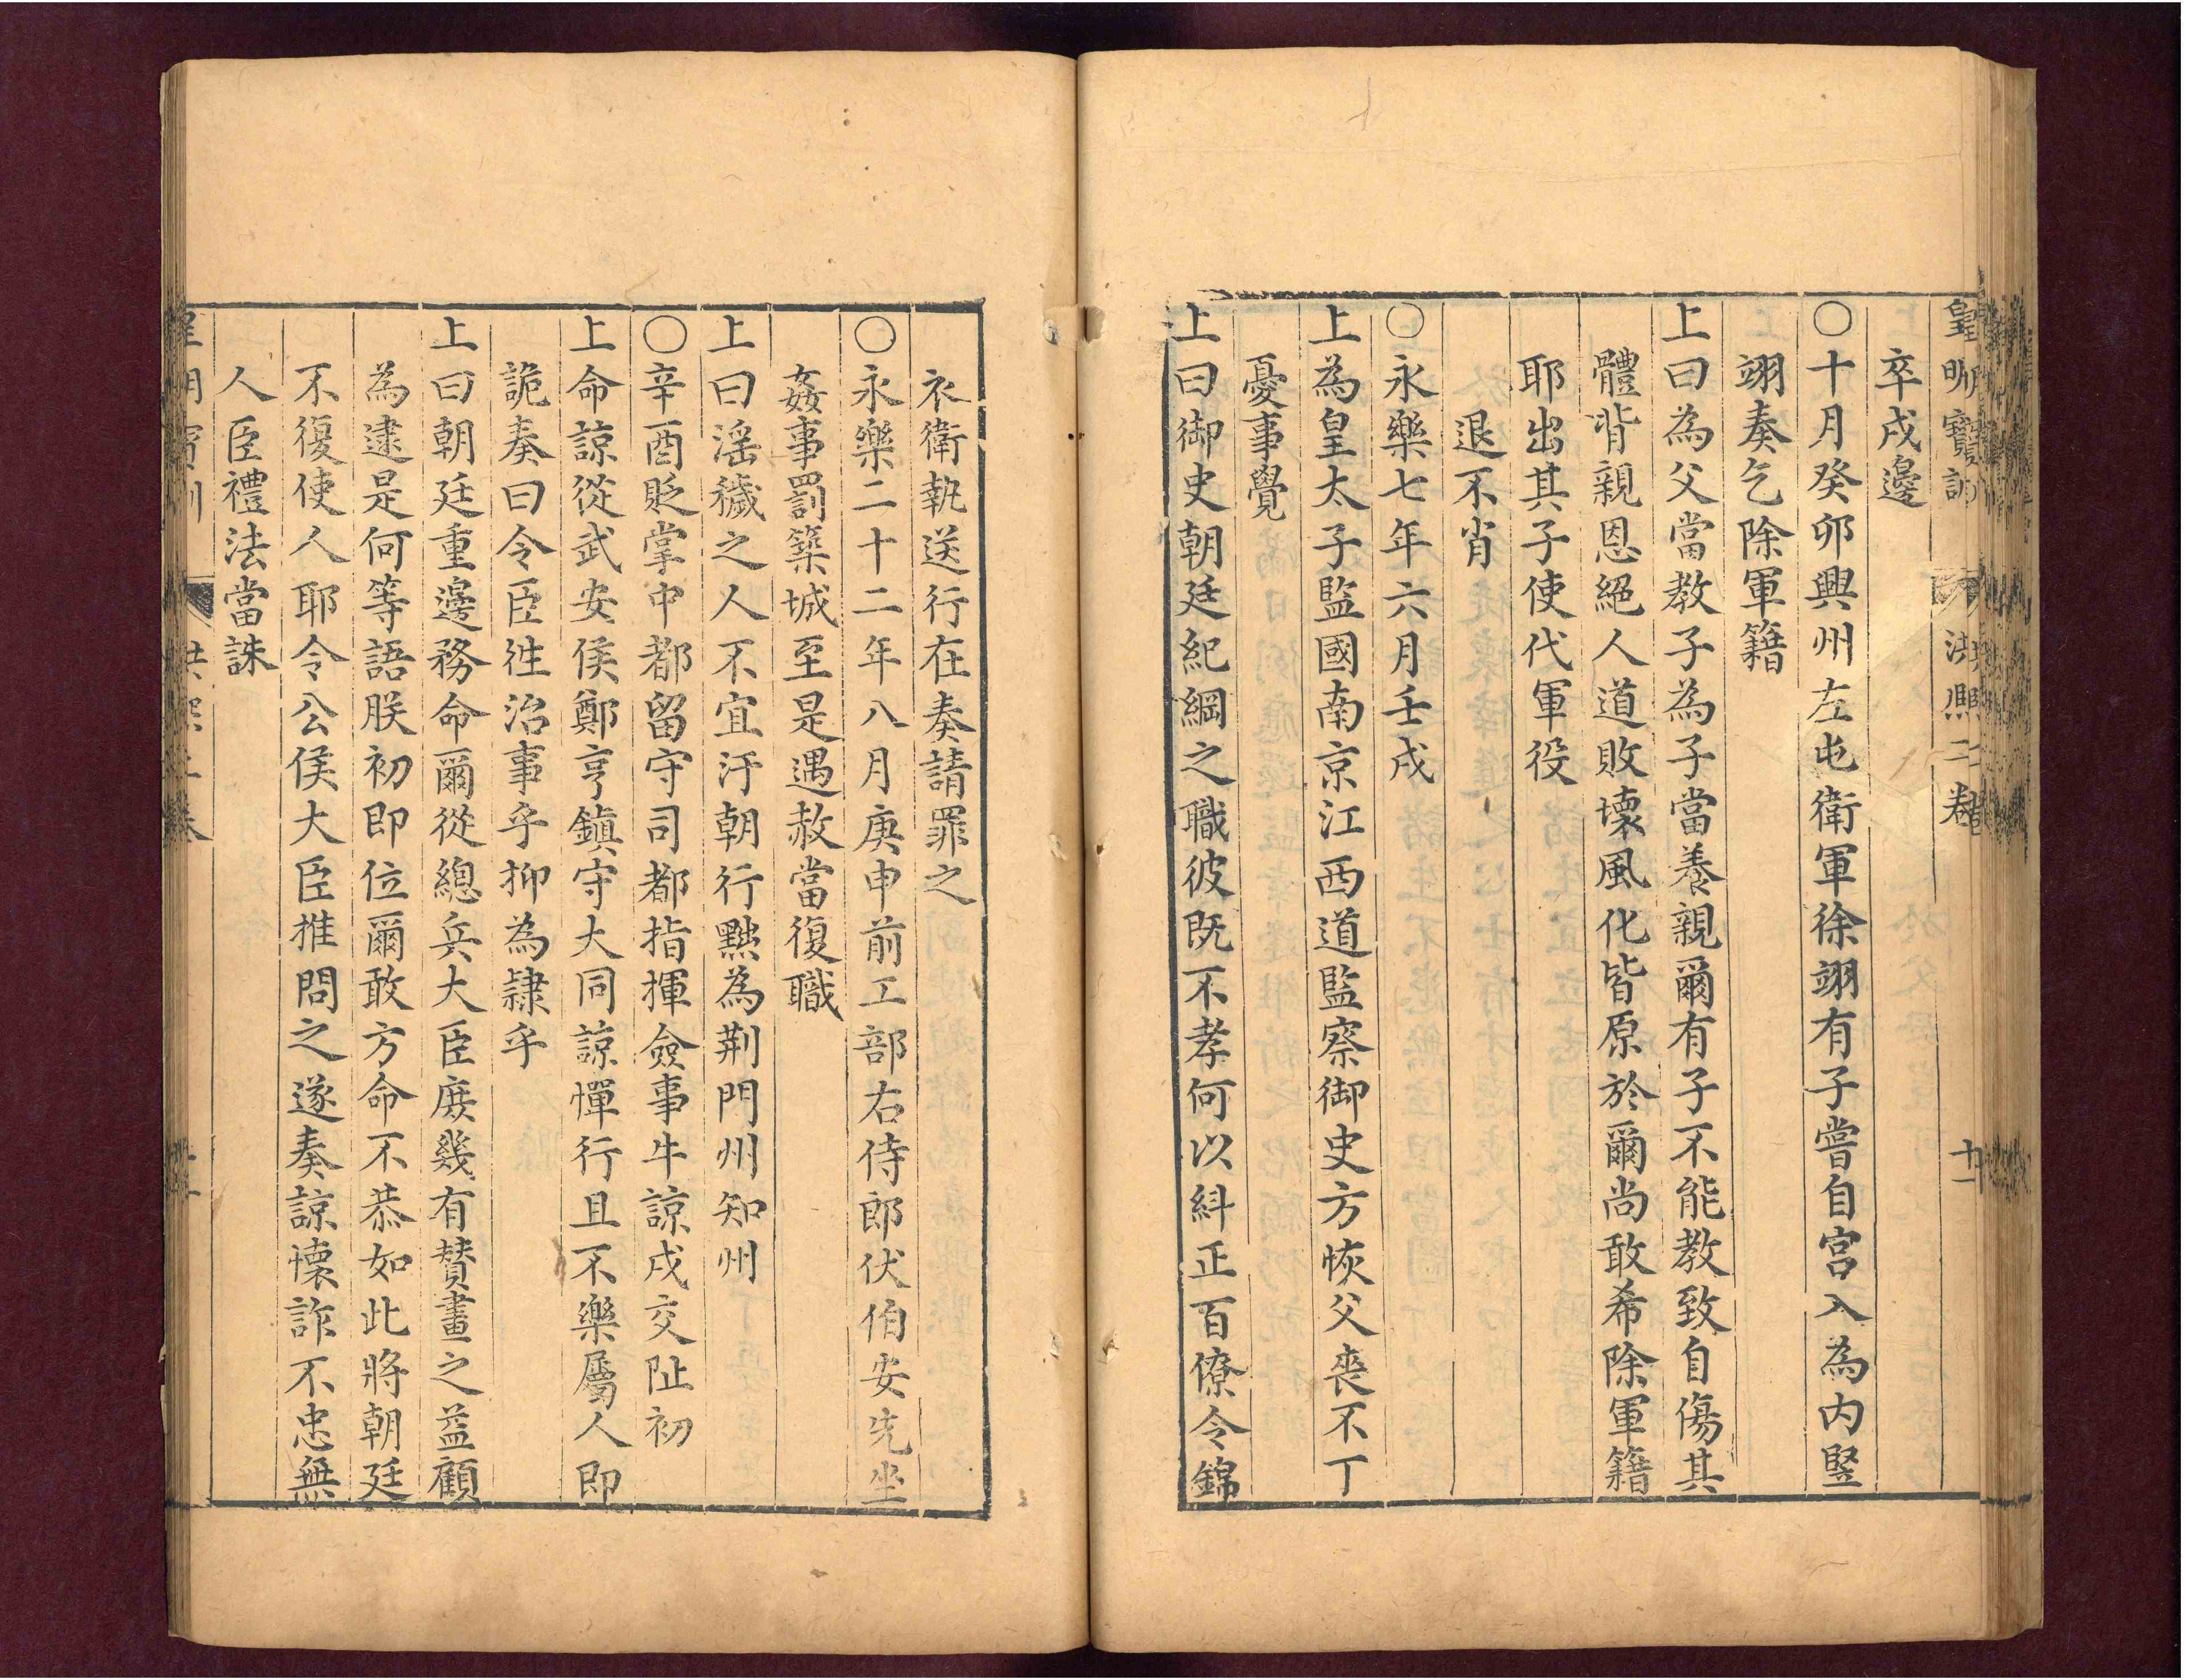 皇明寶訓 洪熙二卷 十一
卒戍邊
○十月癸卯興州左屯衛軍徐翊有子嘗自宮入為內豎
翊奏乞除軍籍
上曰為父當教子為子當養親爾有子不能教致自傷其
體背親恩絕人道敗壞風化皆原於爾尚敢希除軍籍
耶出其子使代軍役
退不肖
○永樂七年六月壬戌
上為皇太子監國南京江西道監察御史方恢父喪不丁
憂事覺
上曰御史朝廷紀綱之職彼既不孝何以糾正百僚令錦
衣衛執送行在奏請罪之
○永樂二十二年八月庚申前工部右侍郎伏伯安先坐
姦事罰築城至是遇赦當復職
上曰淫穢之人不宜汙朝行黜為荆門州知州
○辛酉貶掌中都留守司都指揮僉事牛諒戍交阯初
上命諒從武安侯鄭亨鎮守大同諒憚行且不樂屬人即
詭奏曰令臣徃治事乎抑為隷乎
上曰朝廷重邊務命爾從總兵大臣庶幾有賛畫之益顧
為逮是何等語朕初即位爾敢方命不恭如此將朝廷
不復使人耶令公侯大臣推問之遂奏諒懷詐不忠無
人臣禮法當誅
皇明寶訓 洪熙二卷